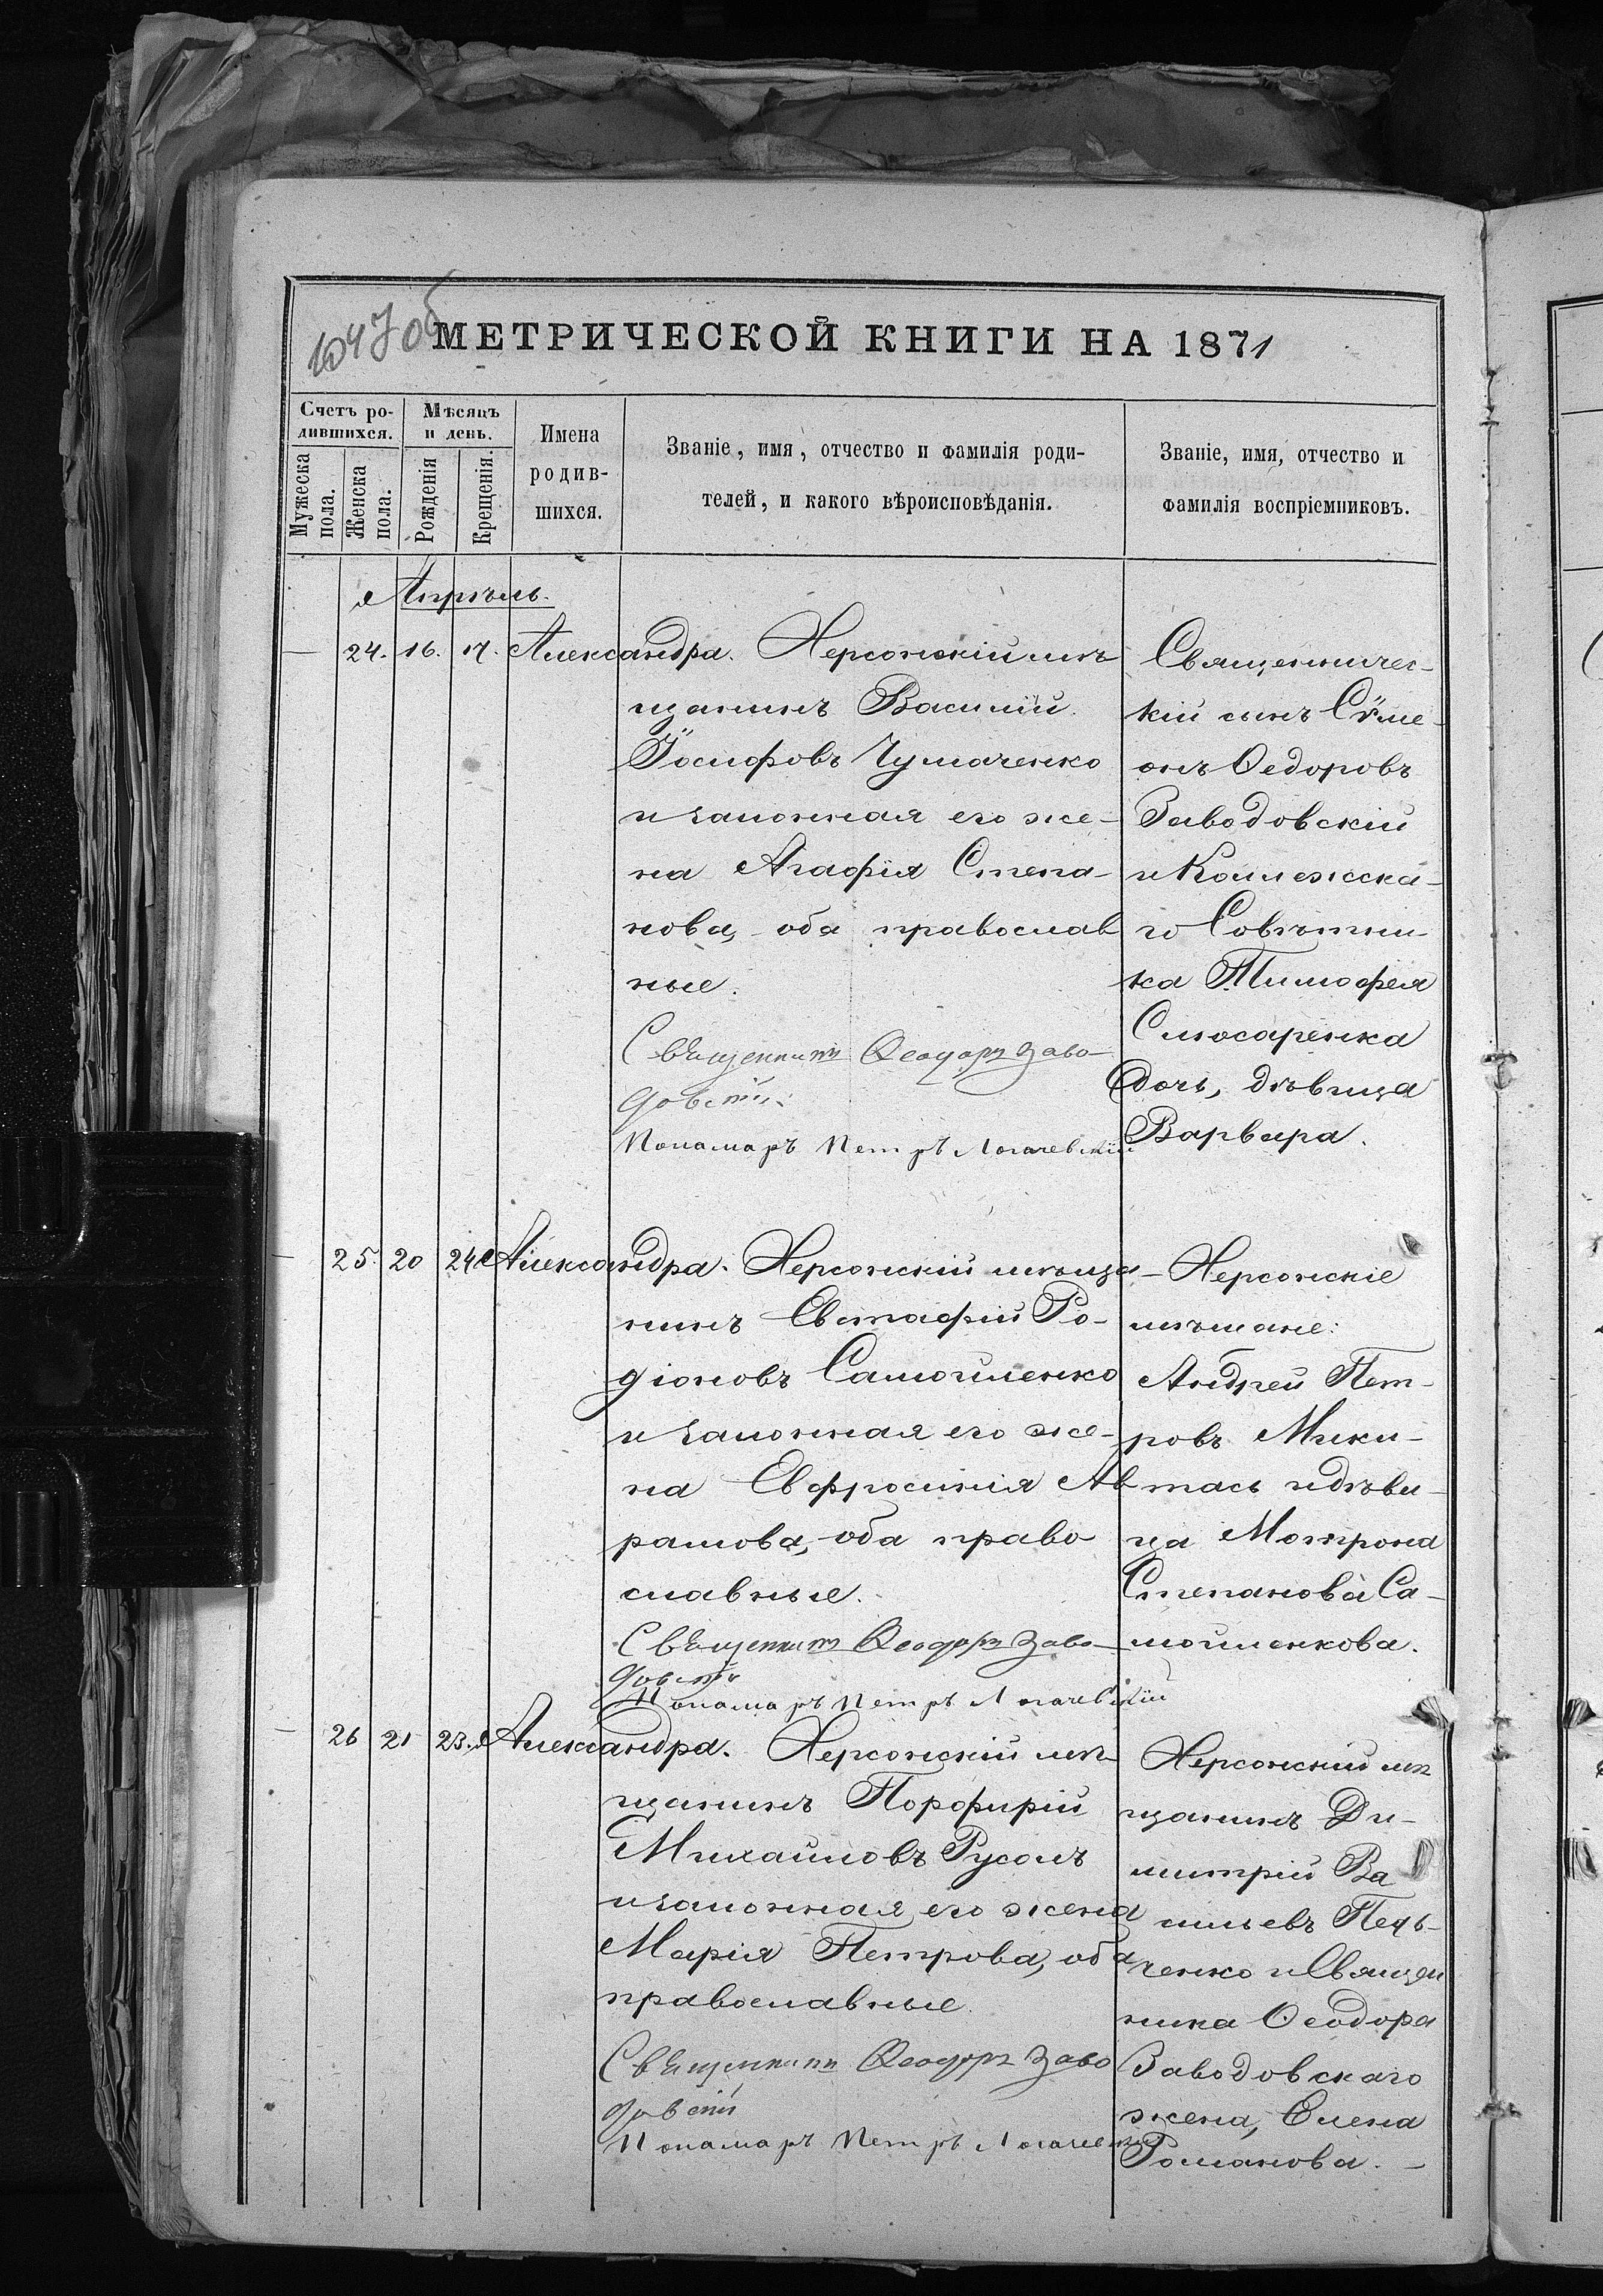 1047об
МЕТРИЧЕСКОЙ КНИГИ НА 1871
Счетъ ро-
дившихся.
Мужеска
пола.
Женска
пола.
Мѣсяцъ
и день.
Рожденія
Крещенія.
Имена
родив-
шихся.
Званіе, имя, отчество и фамилія роди-
телей, и какого вѣроисповѣданія.
Званіе, имя, отчество и
фамилія воспріемниковъ.
Апрѣль.
— 24. 16. 17. Александра. Херсонскій мѣ
щанинъ Василій
Іосифовъ Чумаченко
и законная его же-
на Агафія Степа-
нова, оба православ
ные.
Священникъ Ѳеодоръ Заво-
довскій.
Пономаръ Петръ Логачевскій
Священничес-
кій сынъ Сѵме-
онъ Ѳедоровъ
Заводовскій
и Коллежска-
го Совѣтни-
ка Тимофея
Слюсаренка
дочь, дѣвица
Варвара.
— 25. 20 24 Александра. Херсонскій мѣща-
нинъ Евстафій Ро-
діоновъ Самойленко
и законная его же-
на Евфросинія Ав
рамова, оба право
славные.
Священникъ Ѳеодоръ Заво-
довскій
Пономаръ Петръ Логачевскій
Херсонскіе
мѣщане:
Андрей Пет-
ровъ Мики-
тась и дѣви-
ца Мотрона
Степанова Са-
мойленкова.
— 26 21 23. Александра. Херсонскій мѣ
щанинъ Порфирій
Михайловъ Русолъ
и законная его жена
Марія Петрова, оба
православные.
Священникъ Ѳеодоръ Заво
довскій
Пономаръ Петръ Логачевскій
Херсонскій мѣ
щанинъ Ди-
митрій Ва
сильевъ
ченко и Священ
ника Ѳеодора
Заводовскаго
жена, Елена
Романова. —